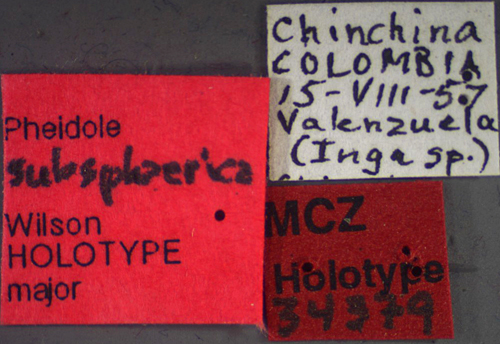 Chinchina
COLOMBIA
15-VIII-57
Valenzuela
(Inga sp.)
Pheidole
subsphaerica
Wilson
HOLOTYPE
major
MCZ
Holotype
34379